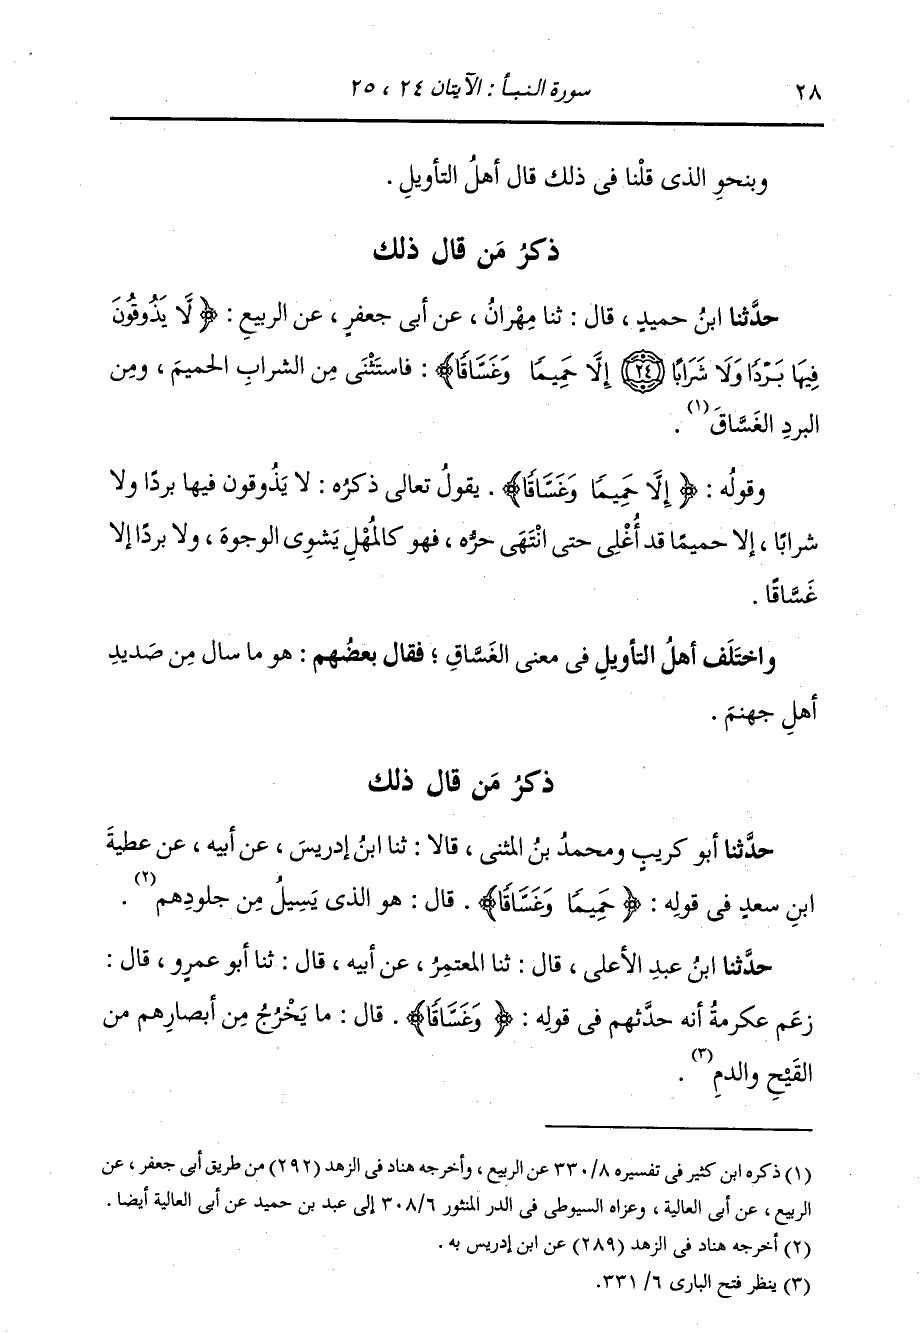 ٢٨
سورة النبأ : الآيتان ٢٤ ، ٢٥
وبنحوِ الذى قلْنا فى ذلك قال أهلُ التأويلِ .
ذكرُ مَن قال ذلك
حدَّثنا ابنُ حميدٍ ، قال : ثنا مِهْرانُ ، عن أبى جعفرٍ ، عن الربيعِ : ﴿ لَّا يَذُوقُونَ
فِيهَا بَرْدًا وَلَا شَرَابًا ﴿٢٤﴾ إِلَّا حَمِيمًا وَغَسَّاقًا ﴾ : فاستَثْنَى مِن الشرابِ الحميمَ ، ومِن
البردِ الغَسَّاقَ (١) .
وقولُه : ﴿ إِلَّا حَمِيمًا وَغَسَّاقًا ﴾ . يقولُ تعالى ذكرُه : لا يَذُوقون فيها بردًا ولا
شرابًا ، إلا حميمًا قد أُغْلِى حتى انْتَهَى حرُّه ، فهو كالمُهْلِ يَشوِى الوجوهَ ، ولا بردًا إلا
غَسَّاقًا .
واختَلَف أهلُ التأويلِ فى معنى الغَسَّاقِ ؛ فقال بعضُهم : هو ما سال مِن صَديدِ
أهلِ جهنمَ .
ذكرُ مَن قال ذلك
حدَّثنا أبو كريبٍ ومحمدُ بنُ المثنى ، قالا : ثنا ابنُ إدريسَ ، عن أبيه ، عن عطيةَ
ابنِ سعدٍ فى قولِه : ﴿ حَمِيمًا وَغَسَّاقًا ﴾ . قال : هو الذى يَسِيلُ مِن جلودِهم (٢) .
حدَّثنا ابنُ عبدِ الأعلى ، قال : ثنا المعتمِرُ ، عن أبيه ، قال : ثنا أبو عمرٍو ، قال :
زعَم عكرمةُ أنه حدَّثهم فى قولِه : ﴿ وَغَسَّاقًا ﴾ . قال : ما يَخْرُجُ مِن أبصارِهم من
القَيْحِ والدمِ (٣) .
(١) ذكره ابن كثير فى تفسيره ٣٣٠/٨ عن الربيع ، وأخرجه هناد فى الزهد (٢٩٢) من طريق أبى جعفر ، عن
الربيع ، عن أبى العالية ، وعزاه السيوطى فى الدر المنثور ٣٠٨/٦ إلى عبد بن حميد عن أبى العالية أيضا .
(٢) أخرجه هناد فى الزهد (٢٨٩) عن ابن إدريس به .
(٣) ينظر فتح البارى ٦/ ٣٣١.